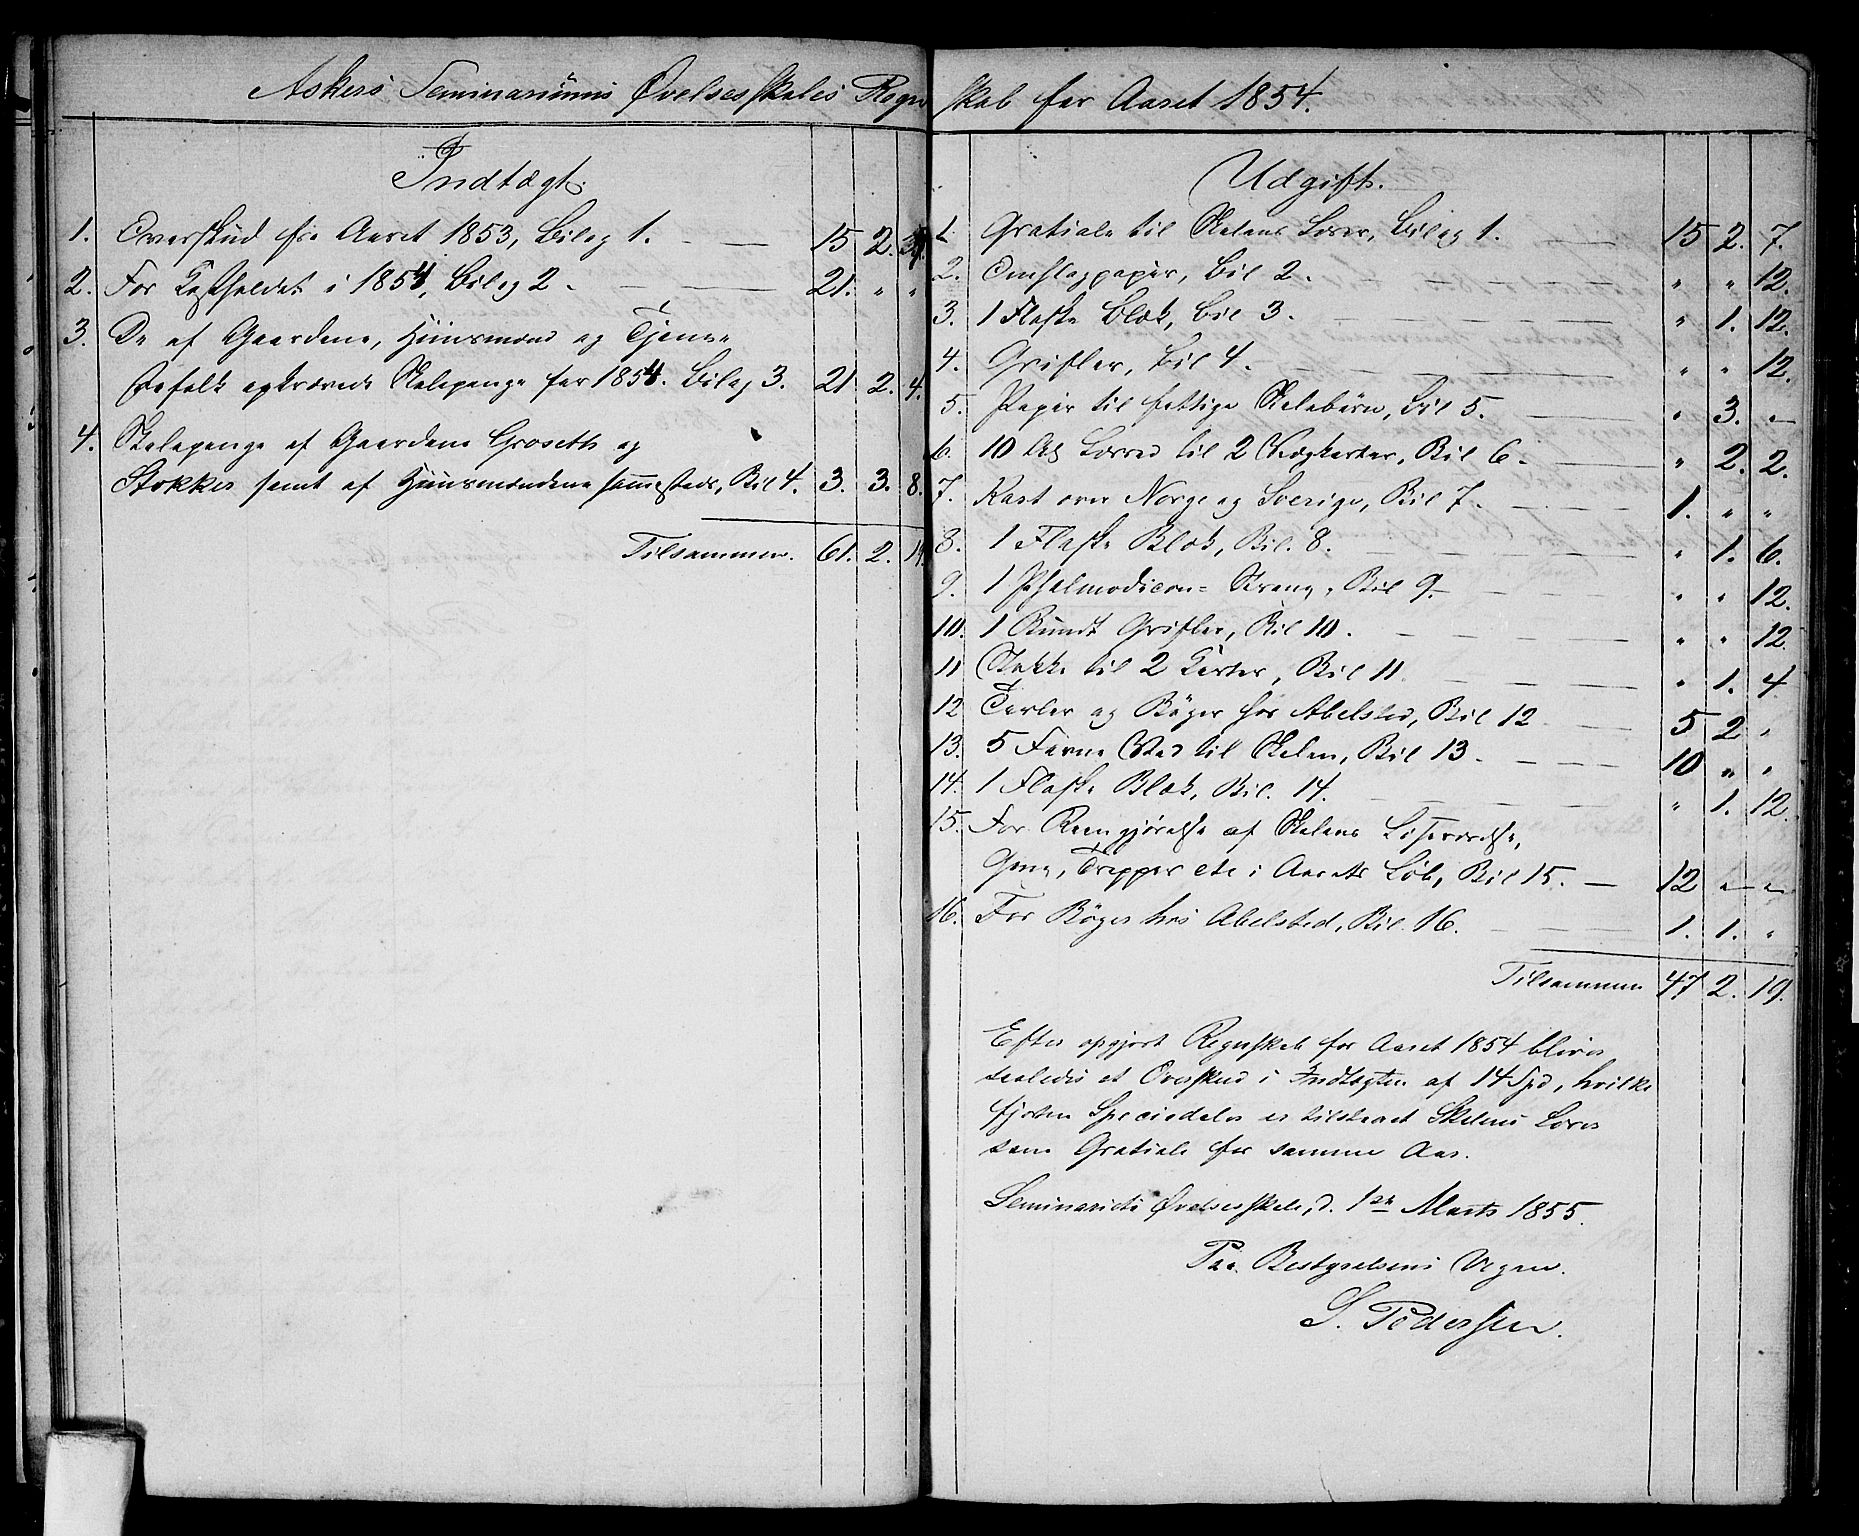 Askers Seminariums Øvelsesskoles Regnskab for Aaret 1854.
Indtægt.
1. Overskud fra Aaret 1853, Bilag 1. 15 2.
2. For Kostholdet i 1854, Bilag 2 21. " "
3. De af Gaardene, Huusmænd og Tjene-
stefolk opkrævede Skolepenge for 1854. Bilag 3. 21. 2. 4.
4. Skolepenge af Gaardene Groseth og
Stokker samt af Huusmændene sammesteds, Bil 4. 3. 3. 8.
Tilsammen. 61. 2. 19.
Udgift.
1. Gratiale til Skolens Lærer, Bilag 1. 15 2. 7.
2. Omslagpapir, Bil 2. " " 12.
3. 1 Flaske Blæk, Bil 3. " 1. 12.
4. Grifler, Bil 4. " " 12.
5. Papir til fattige Skolebørn, Bil 5. " 3. "
6. 10 Al Lærred til 2 Vægkarter, Bil 6. " 2. 2.
7. Kart over Norge og Sverige, Bil 7. 1. " "
8. 1 Flaske Blæk, Bil. 8. " 1. 6.
9. 1 Psalmodicon-Streng, Bil 9. " " 12.
10. 1 Bundt Grifler, Bil 10. " " 12.
11 Stokke til 2 Karter, Bil 11. " 1. 4
12 Tavler og Bøger hos Abelsted, Bil 12 5 2 "
13. 5 Favne Ved til Skolen, Bil 13. 10 " "
14. 1 Flaske Blæk, Bil. 14. " 1. 12.
15. For Reengjørelse af Skolens Læseværelse,
Gang, Trapper etc i Aarets Løb, Bil 15. 12 " "
16. For Bøger hos Abelsted, Bil. 16. 1. 1. "
Tilsammen 47 2. 19.
Efter opgjort Regnskab for Aaret 1854 bliver
saaledes et Overskud i Indtægten af 14 Spd, hvilke
fjorten Speciedaler er tilstaaet Skolens Lærer
som Gratiale for samme Aar.
Seminariets Øvelsesskole, d. 1ste Marts 1855.
Paa Bestyrelsens Vegne.
S. Pedersen.